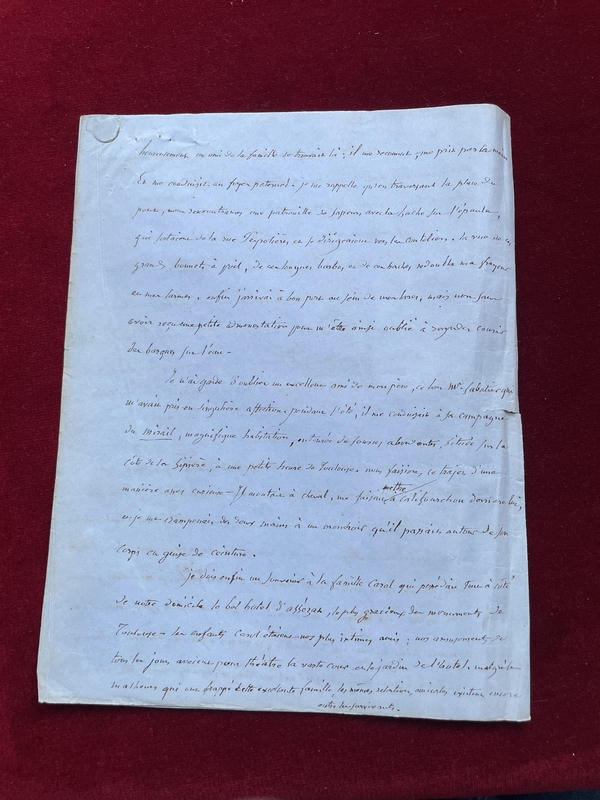 heureusement un ami de la famille se trouvait là ; il me reconnut, me prit par la main
Et me conduisit au foyer paternel. je me rappelle qu'en traversant la place du
pont, nous rencontrames une patrouille de sapeurs avec la hache sur l'épaule,
qui sortaient de la rue Peyrolières et se dirigeaient vers les Cordeliers. la vue de ces
grands bonnets à poil, de ces longues barbes et de ces haches redoubla ma frayeur
et mes larmes. enfin j'arrivai à bon port au sein de mes lares, mais non sans
avoir reçu une petite admonestation pour m'être ainsi oublié à regarder courir
des barques sur l'eau.
Je n'ai garde d'oublier un excellent ami de mon père, ce bon Mr.
m'avait pris en singulière affection ; pendant l'été, il me conduisait à sa campagne
du Mirail, magnifique habitation, entourée de sources abondantes, située sur la
côte de la à une petite heure de Toulouse. nous faisions ce trajet d'une
manière assez curieuse - Il montait à cheval, me faisait mettre à califourchon derrière lui,
et je me cramponais des deux mains à un mouchoir qu'il passait autour de son
corps en guise de ceinture.
je dois enfin un souvenir à la famille Carol qui possédait tout à côté
de notre domicile le bel hotel d'assézat, le plus gracieux des monuments de
Toulouse - les enfants Carol étaient nos plus intimes amis ; nos amusements de
tous les jours avaient pour théâtre la vaste cour et le jardin de l'hotel. malgré les
malheurs qui ont frappé cette excellente famille, les mêmes relations amicales existent encore
entre les survivants.